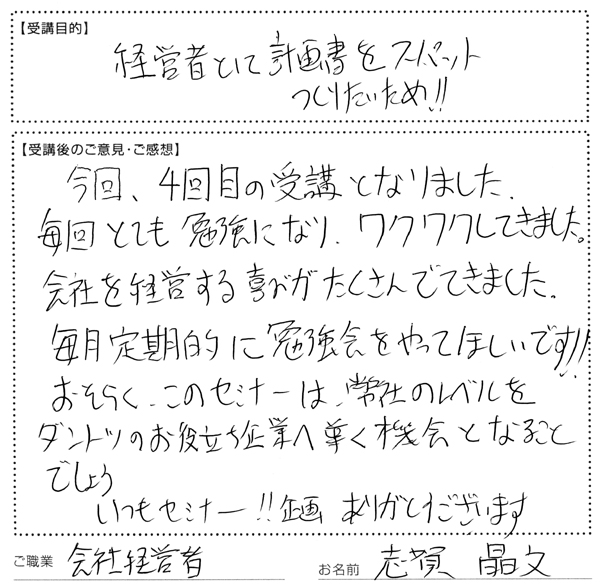 【受講目的】
経営者として計画書をズバット
つくりたいため!!
【受講後のご意見・ご感想】
今回、4回目の受講となりました。
毎回とても勉強になり、ワクワクしてきました。
会社を経営する喜びがたくさんでてきました。
毎月定期的に勉強会をやってほしいです!!
おそらく、このセミナーは、常社のレベルを
ダントツのお役立ち企業へ導く機会となること
でしょう
いつもセミナー!!企画 ありがとうございます
ご職業 会社経営者
お名前 志賀 晶文